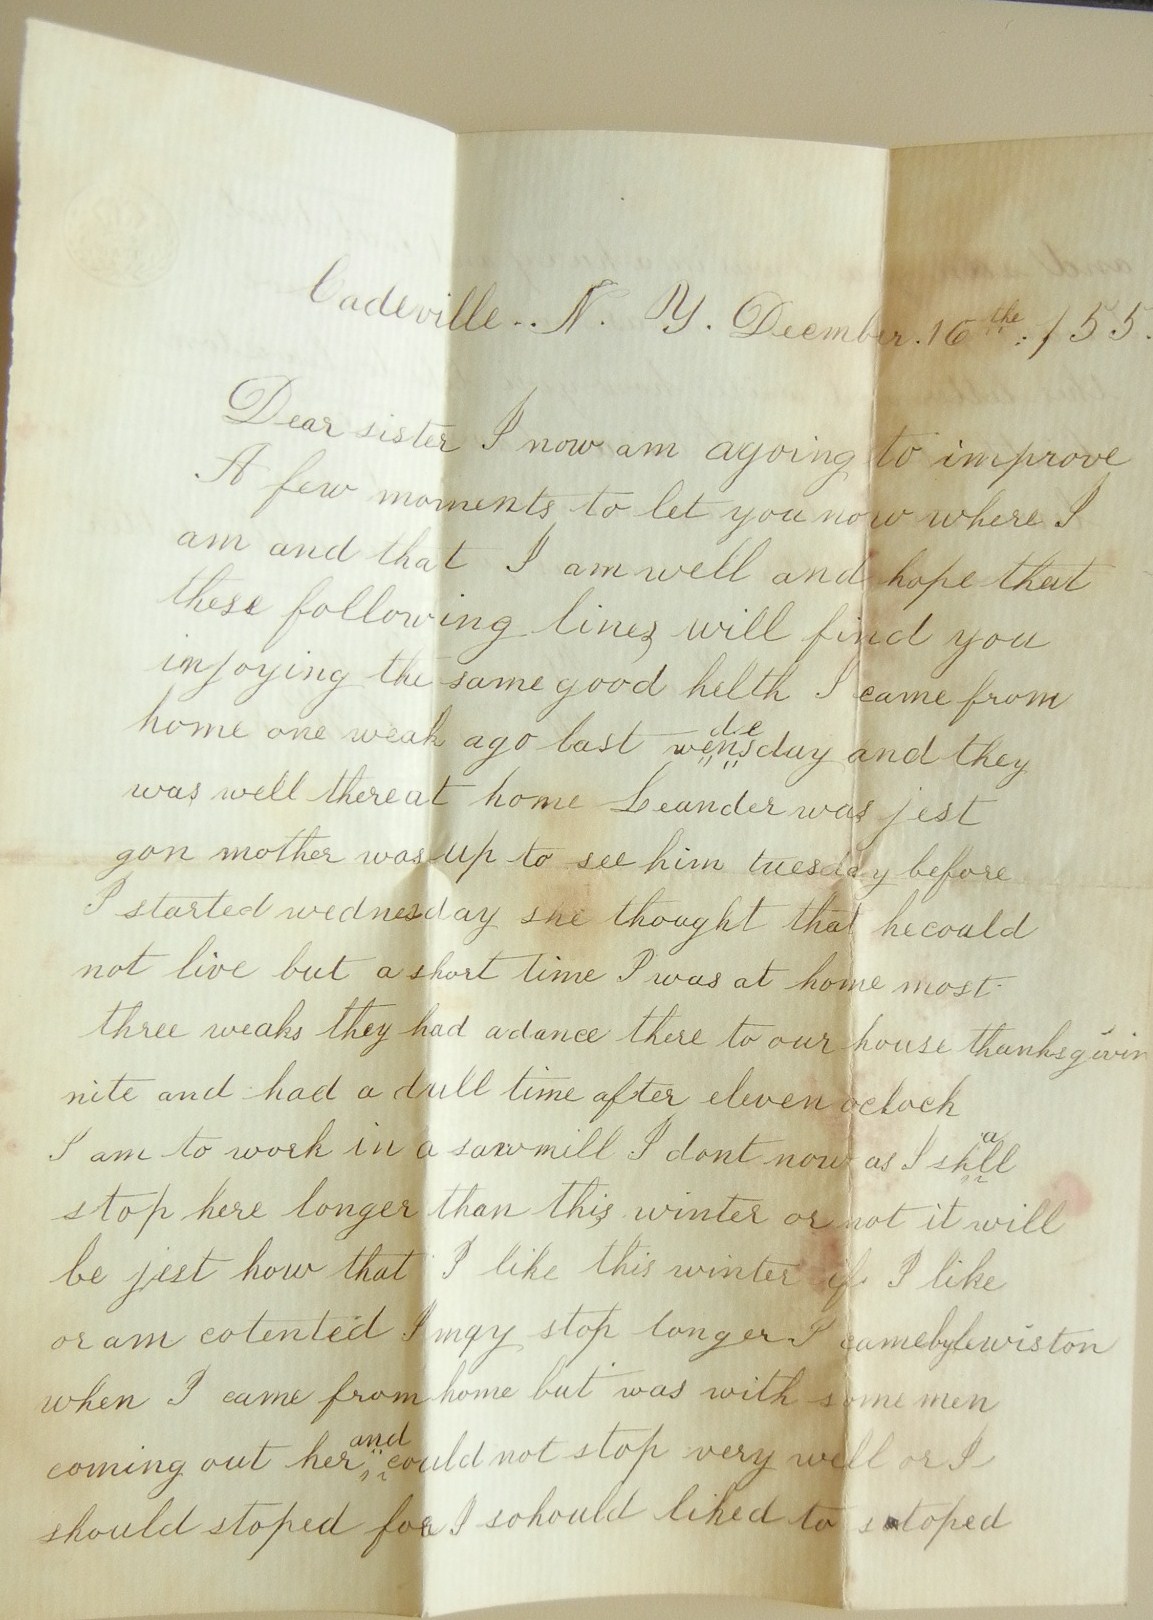 Cadeville.. N. Y. Decmber. 16 the. /55.
Dear sister I now am agoing to improve
A few moments to let you now where I
am and that I am well and hope that
these following lines will find you
injoying the same good helth I came from
home one weak ago last wensdeday and they
was well there at home Leander was jest
gon mother was up to see him tuesday before
I started wednesday she thought that he could
not live but a short time I was at home most
three weaks they had a dance there to our house thanksgivin
nite and had a dull time after eleven oclock
I am to work in a sawmill I dont now as I shall
stop here longer than this winter or not it will
be jest how that I like this winter if I like
or am cotented I may stop longer I came by lewiston
when I came from home but was with some men
coming out her and could not stop very well or I
should stoped for I sohould liked to stoped